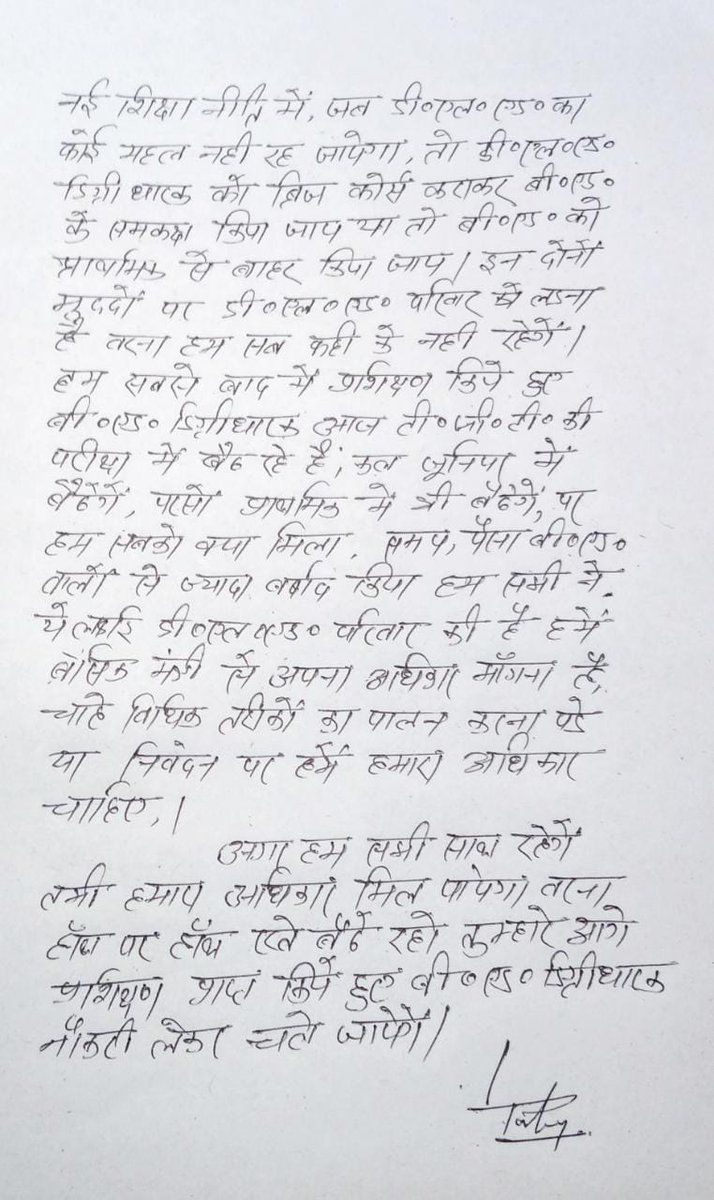 नई शिक्षा नीति में, जब डी०एल०एड० का
कोई महत्व नही रह जायेगा, तो डी०एल०एड०
डिग्री धारक को ब्रिज कोर्स कराकर बी०एड०
के समकक्ष किया जाय या तो बी०एड० को
प्राथमिक से बाहर किया जाय। इन दोनों
मुद्दों पर डी०एल०एड० परिवार को लडना
है वरना हम सब कही के नही रहेगें।
हम सबसे बाद में प्रशिक्षण किये हुए
बी०एड० डिग्रीधारक आज टी०जी०टी० की
परीक्षा में बैठ रहे है, कल जूनियर में
बैठेगें, परसो प्राथमिक मे भी बैठेगें, पर
हम सबको क्या मिला, समय, पैसा बी०एड०
वालों से ज्यादा बर्बाद किया हम सभी ने,
ये लडाई डी०एल०एड० परिवार की है हमें
बेसिक मंत्री से अपना अधिकार माँगना है,
चाहे विधिक तरीकों का पालन करना पडे
या निवेदन पर हमें हमारा अधिकार
चाहिए,।
अगर हम सभी साथ रहेगें
तभी हमारा अधिकार मिल पायेगा वरना
हाँथ पर हाँथ रखे बैठे रहो तुम्हारे आगे
प्रशिक्षण प्राप्त किये हुए बी०एड० डिग्रीधारक
नौकरी लेकर चले जायेगें।